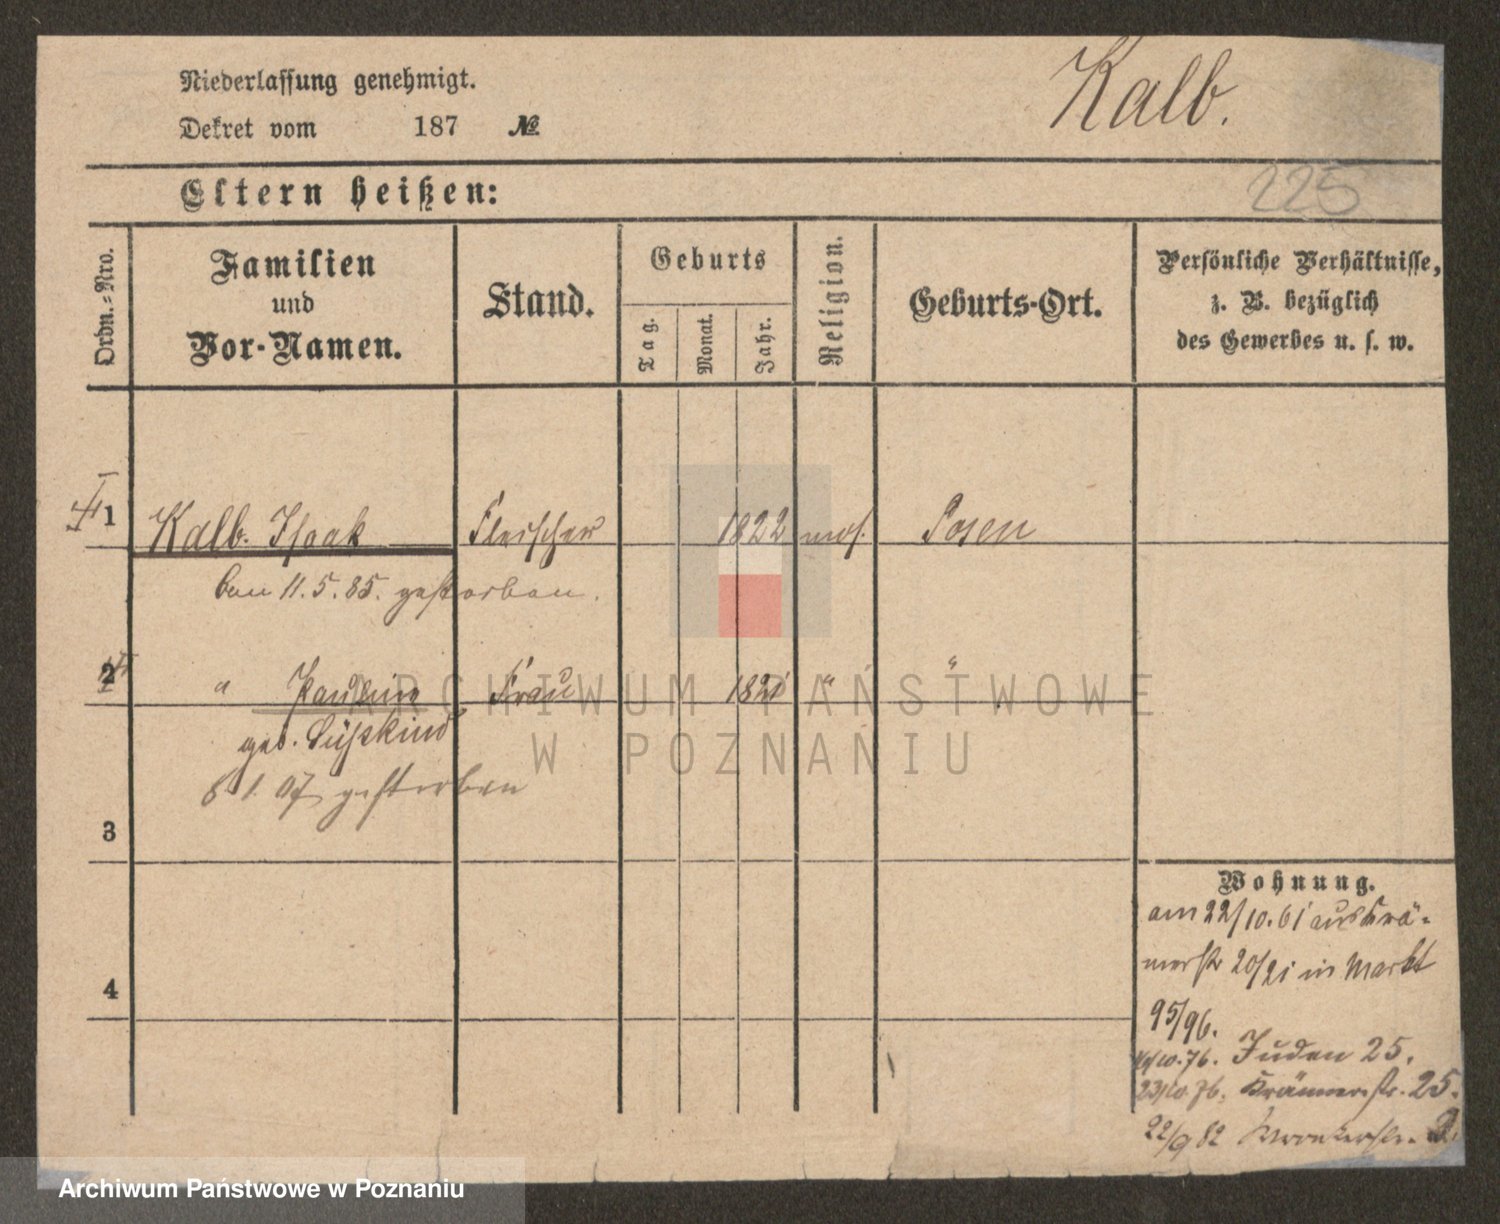 Niederlassung genehmigt.
Kalb.
Dekret vom 187 №
225
Eltern heißen:
Ordn.=Nro.
Familien
und
Vor-Namen.
Stand.
Geburts
Tag.
Monat.
Jahr.
Religion.
Geburts-Ort.
Persönliche Verhältnisse,
z. B. bezüglich
des Gewerbes u. s. w.
1 Kalb. Isaak Fleischer 1822 mos. Posen
den 11.5.85. gestorben.
2 " Pauline Frau 1821 " "
geb. Süßkind
6 1. 07 gestorben
3
4
Wohnung.
am 22/10.61 aus Krä-
merstr 20/21 in Markt
95/96.
10.76. Juden 25.
23/10.76. Krämerstr. 25.
22/9 82 Wronkerstr.
ARCHIWUM PAŃSTWOWE
W POZNANIU
Archiwum Państwowe w Poznaniu